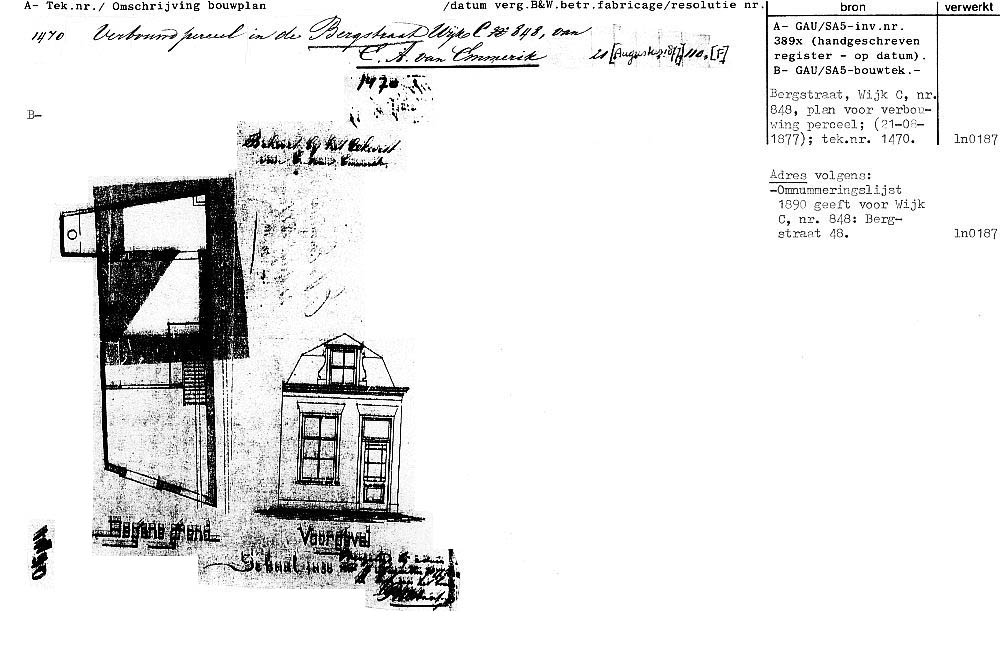 A- Tek.nr./ Omschrijving bouwplan /datum verg.B&W.betr.fabricage/resolutie nr. bron verwerkt
1470 Verbouw perceel in de Bergstraat Wijk C no 848, van
C. A. van Emmerik 21 [Augustus 1877] no. [F]
A- GAU/SA5-inv.nr.
389x (handgeschreven
register - op datum).
B- GAU/SA5-bouwtek.-
Bergstraat, Wijk C, nr.
848, plan voor verbou-
wing perceel; (21-08-
1877); tek.nr. 1470. ln0187
1470
B-
Behoort bij het
van C. van Emmerik.
Adres volgens:
-Omnummeringslijst
1890 geeft voor Wijk
C, nr. 848: Berg-
straat 48. ln0187
Begane grond
Voorgevel
Schaal